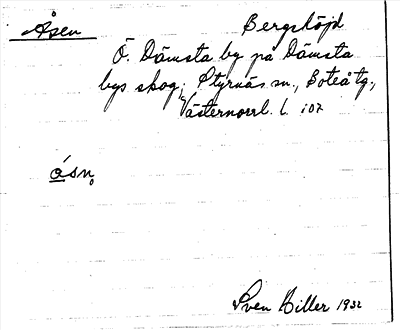 Åsen Bergshöjd
Ö. Dämsta by på Dämsta
bys skog; Styrnäs sn., Boteå tg.,
Västernorrl. l. 107
ɑ́sn̥
Sven Hiller 1932